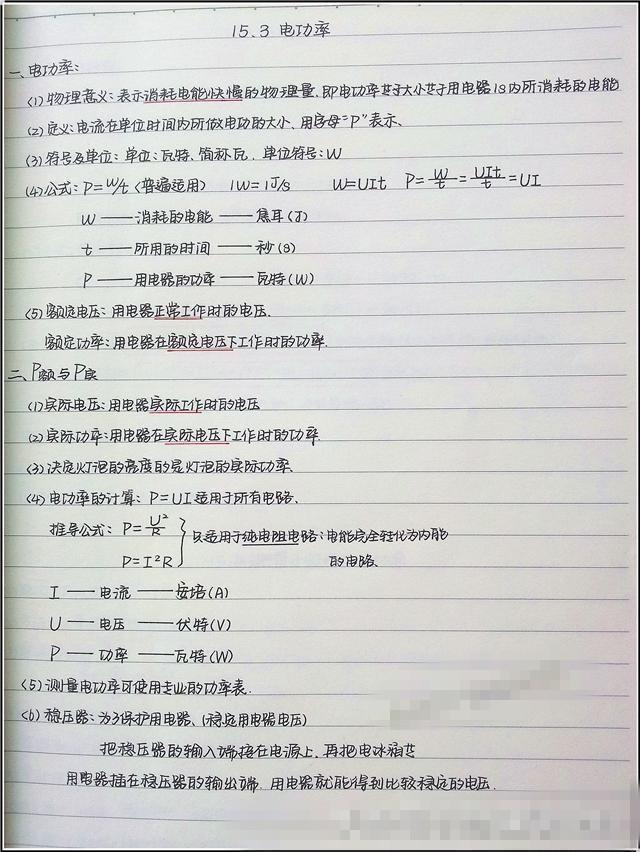 15.3 电功率
一、电功率:
(1)物理意义:表示消耗电能快慢的物理量.即电功率大小于用电器1s内所消耗的电能
(2)定义:电流在单位时间内所做电功的大小、用字母"P"表示、
(3)符号及单位:单位:瓦特、简称瓦、单位符号:W
(4)公式:P=W/t(普遍适用) 1W=1J/s W=UIt P=W/t=UIt/t=UI
W——消耗的电能——焦耳(J)
t——所用的时间——秒(s)
P——用电器的功率——瓦特(W)
(5)额定电压:用电器正常工作时的电压.
额定功率:用电器在额定电压下工作时的功率.
二、P额与P实
(1)实际电压:用电器实际工作时的电压
(2)实际功率:用电器在实际电压下工作时的功率.
(3)决定灯泡的亮度的是灯泡的实际功率、
(4)电功率的计算:P=UI适用于所有电路、
推导公式:P=U²/R } 只适用于纯电阻电路:电能完全转化为内能
P=I²R 的电路、
I——电流——安培(A)
U——电压——伏特(V)
P——功率——瓦特(W)
(5)测量电功率可使用专业的功率表.
(6)稳压器:为了保护用电器、(稳定用电器电压)
把稳压器的输入端接在电源上、再把电冰箱等
用电器插在稳压器的输出端.用电器就能得到比较稳定的电压.